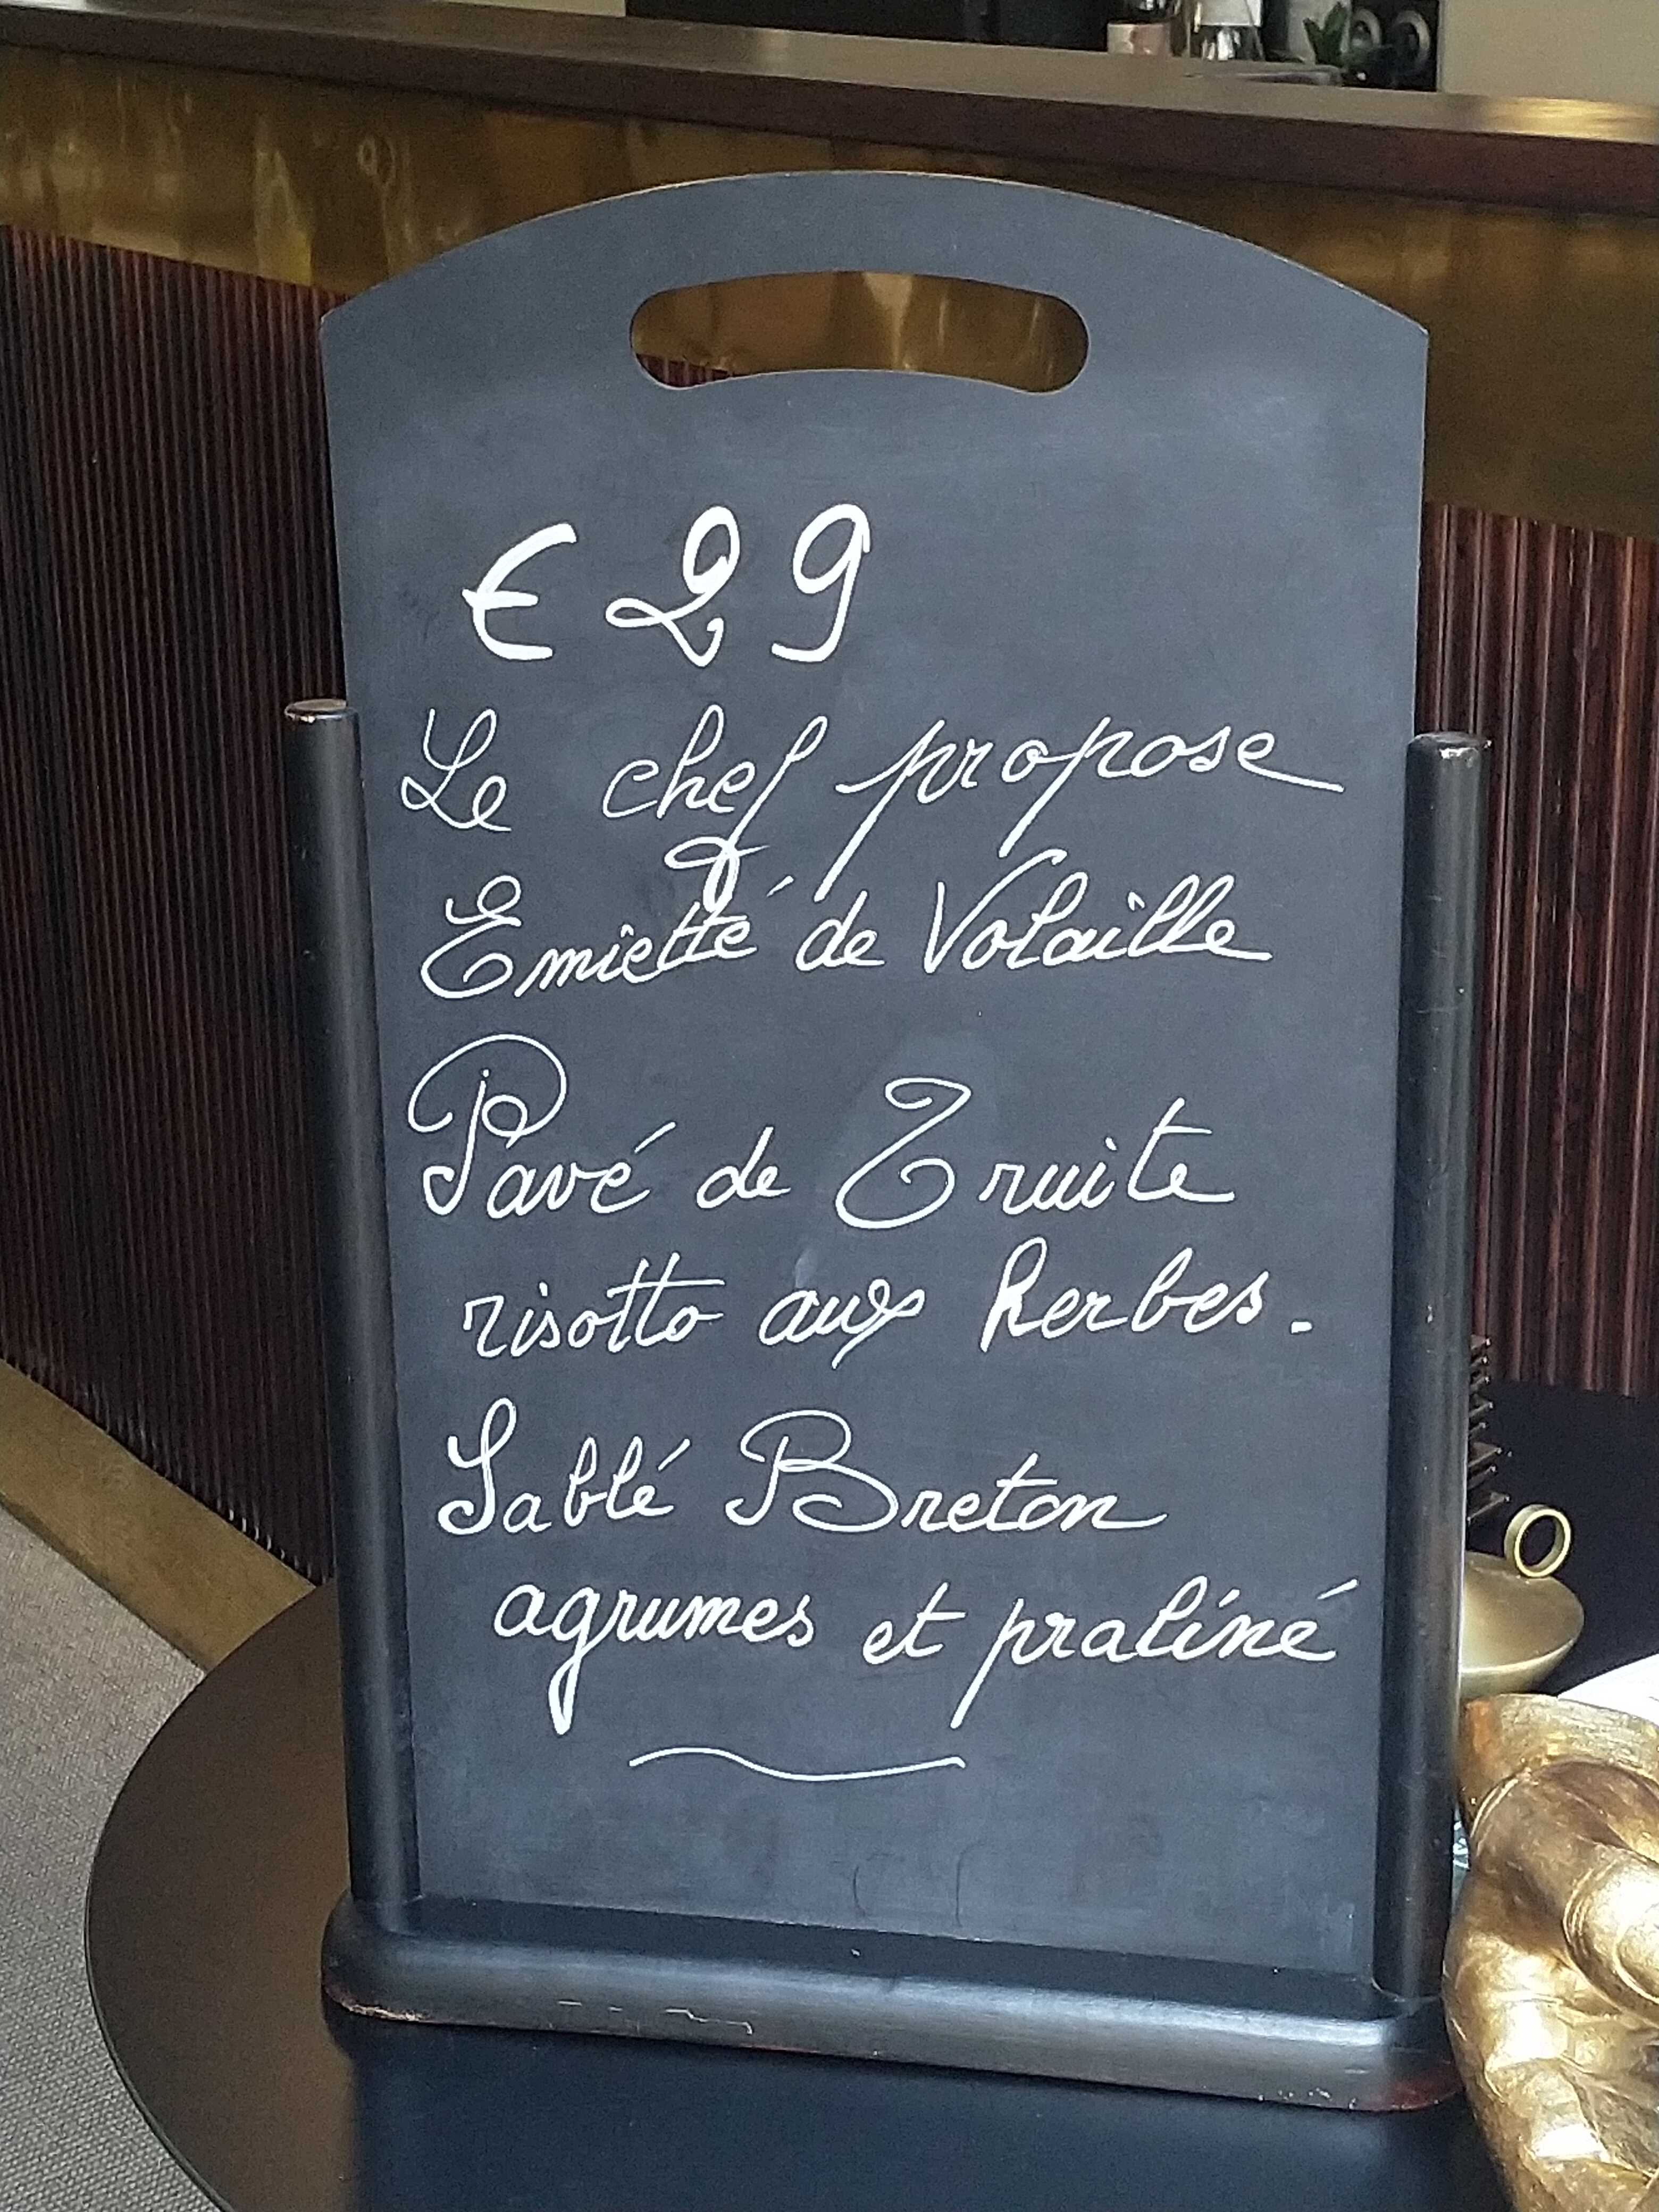 € 29
Le chef propose
Emietté de Volaille
Pavé de Truite
risotto aux herbes.
Sablé Breton
agrumes et praliné